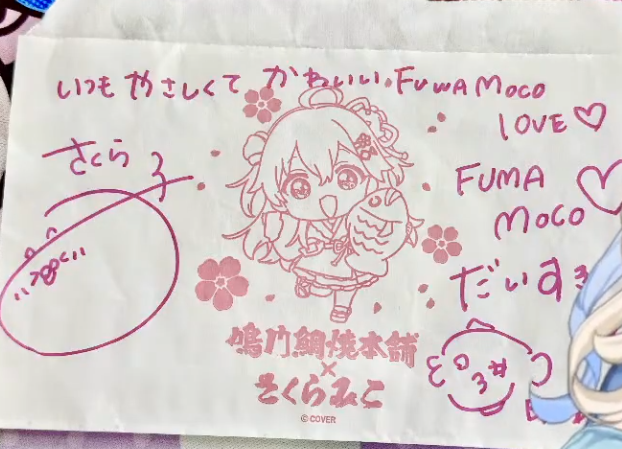 いつもやさしくて かわいい。FUWAMOCO
LOVE♡
さくら
FUMA
MOCO♡
だいすき
鳴門鯛焼本舗
×
さくらみこ
©COVER